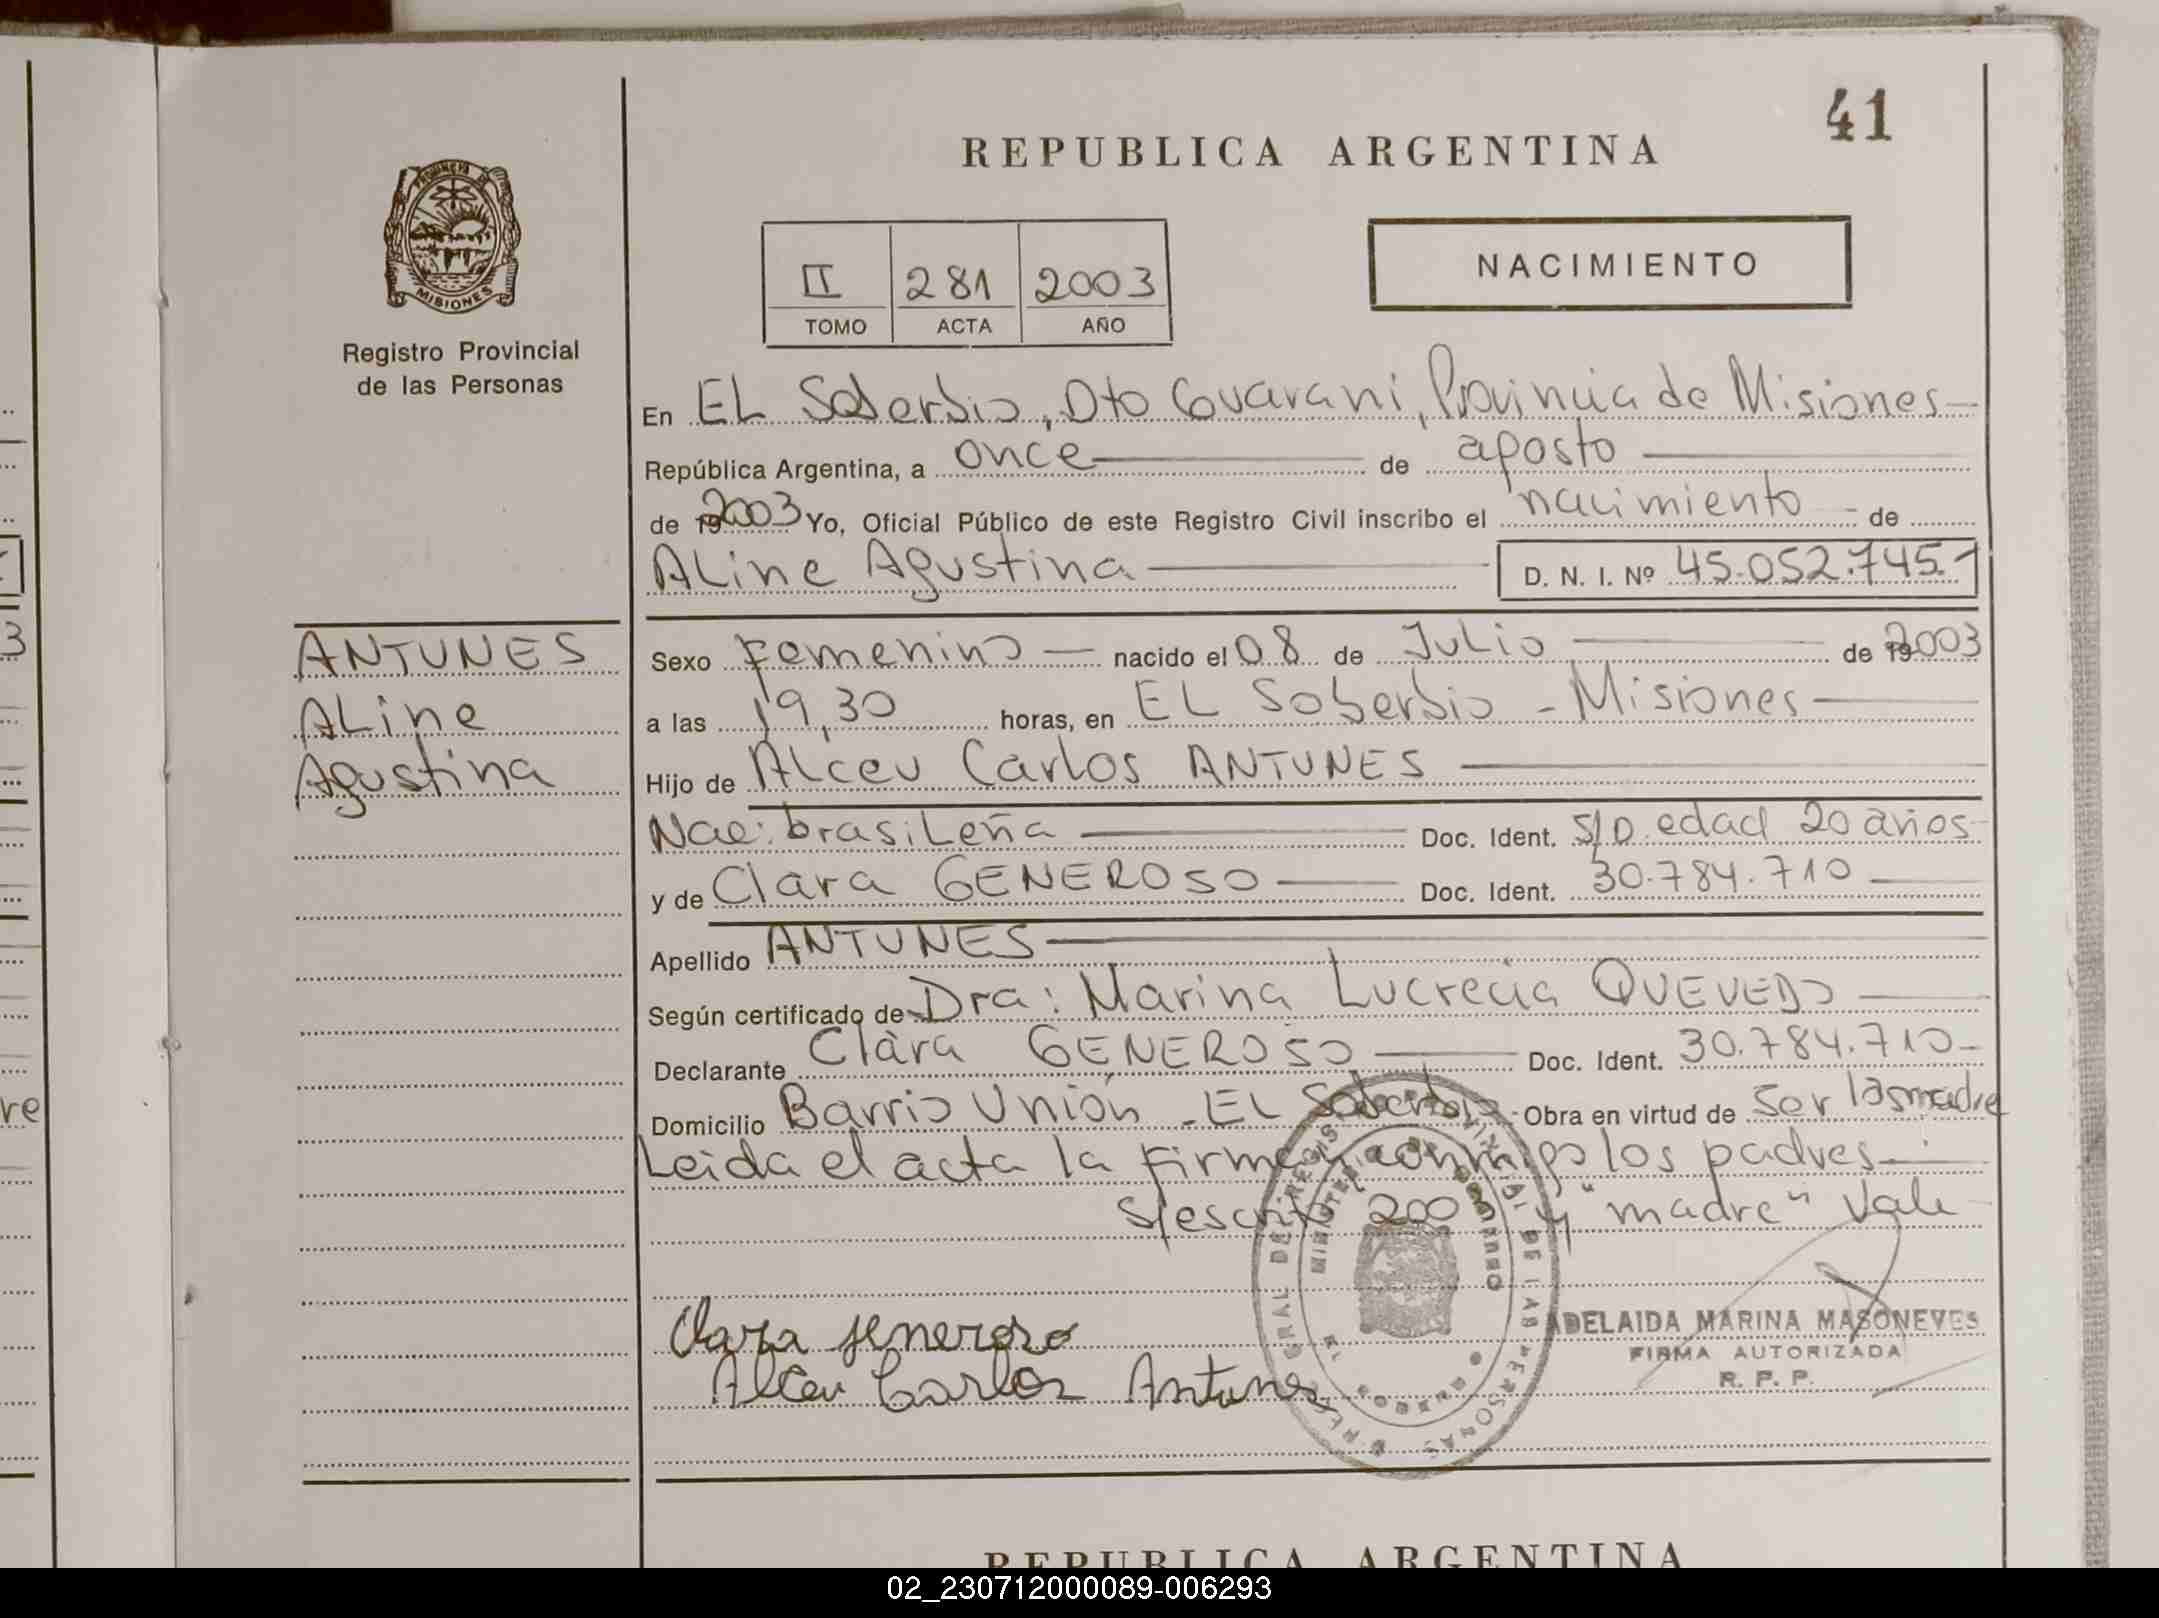 41
REPUBLICA ARGENTINA
PROVINCIA DE
MISIONES
Registro Provincial
de las Personas
II 281 2003
TOMO ACTA AÑO
NACIMIENTO
En EL Soberbio, Dto Guarani, Provincia de Misiones
República Argentina, a once de agosto
de 2003 Yo, Oficial Público de este Registro Civil inscribo el nacimiento de
ALine Agustina D. N. I. Nº 45.052.745.
ANTUNES
ALine
Agustina
Sexo Femenino nacido el 08 de Julio de 2003
a las 19,30 horas, en EL Soberbio - Misiones
Hijo de Alceu Carlos ANTUNES
Nac: brasiLeña Doc. Ident. S/D. edad 20 años
y de Clara GENEROSO Doc. Ident. 30.784.710
Apellido ANTUNES
Según certificado de Dra: Marina Lucrecia QUEVEDO
Declarante Clara GENEROSO Doc. Ident. 30.784.710
Domicilio Barrio Unión - EL Soberbio Obra en virtud de ser madre
Leida el acta la firman conmigo los padres
s/escrito 2003 y "madre" Vale
MINISTERIO DE GOBIERNO
DE LAS PERSONAS
Clara generoso
Alceu Carlos Antunes
ADELAIDA MARINA MASONEVES
FIRMA AUTORIZADA
R. P. P.
REPUBLICA ARGENTINA
02_230712000089-006293